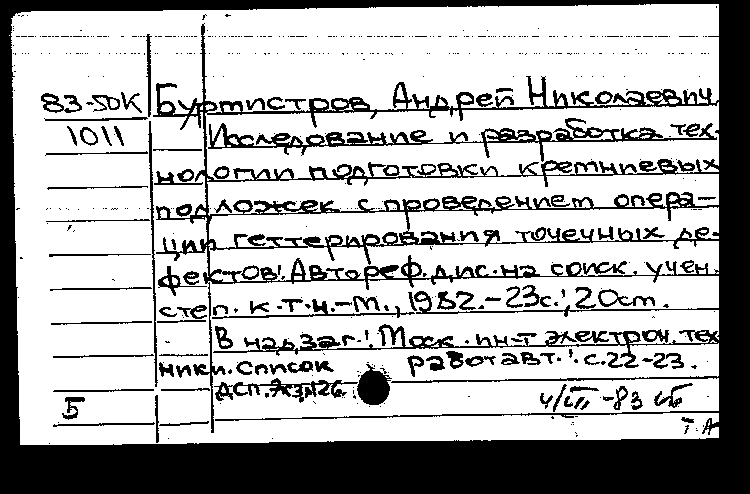 83-50К Буртмистров, Андрей Николаевич.
1011 Исследование и разработка тех-
нологии подготовки кремниевых
подложек с проведением опера-
ции геттерирования точечных де-
фектов: Автореф. дис. на соиск. учен.
степ. к.т.н. - М., 1982. - 23с.; 20см.
В надзаг.: Моск. ин-т электрон. тех
ники. Список работ авт.: с.22-23.
ДСП. Экз.№26
Б 4/III-83
Т. А